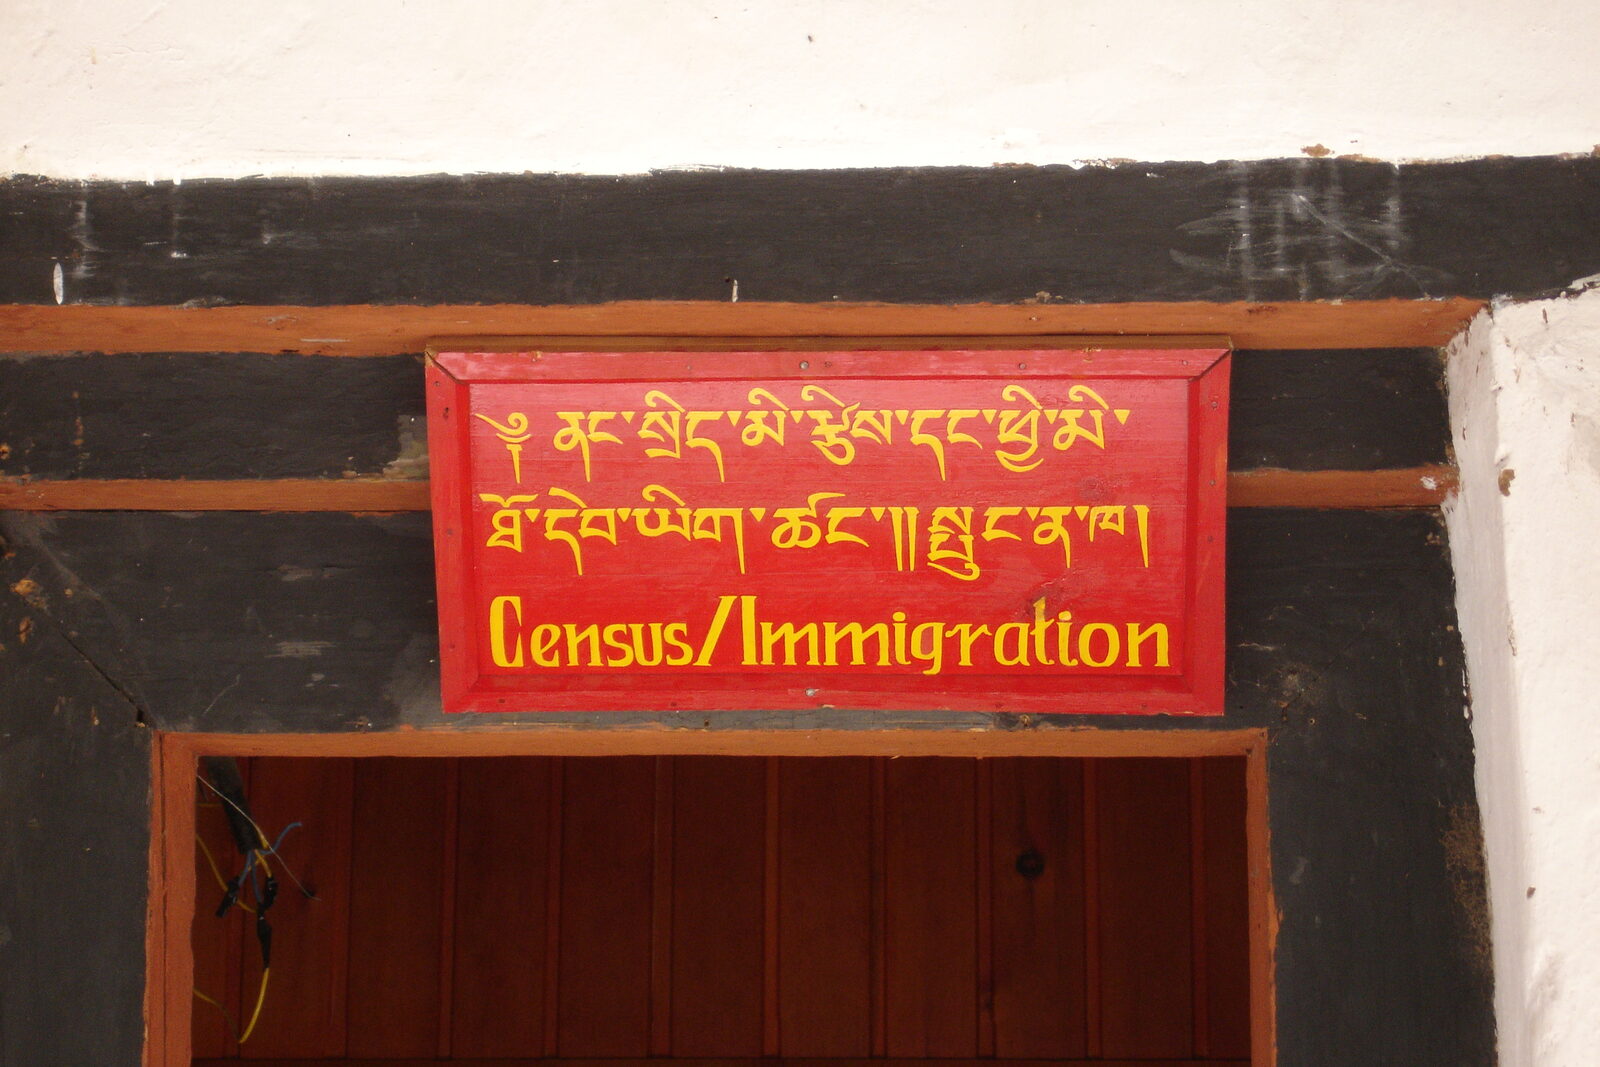 ༄ ནང་སྲིད་མི་རྩིས་དང་ཕྱི་མི་
ཐོ་དེབ་ཡིག་ཚང་༎ སྤྲུང་ན་ཁ།
Census/Immigration